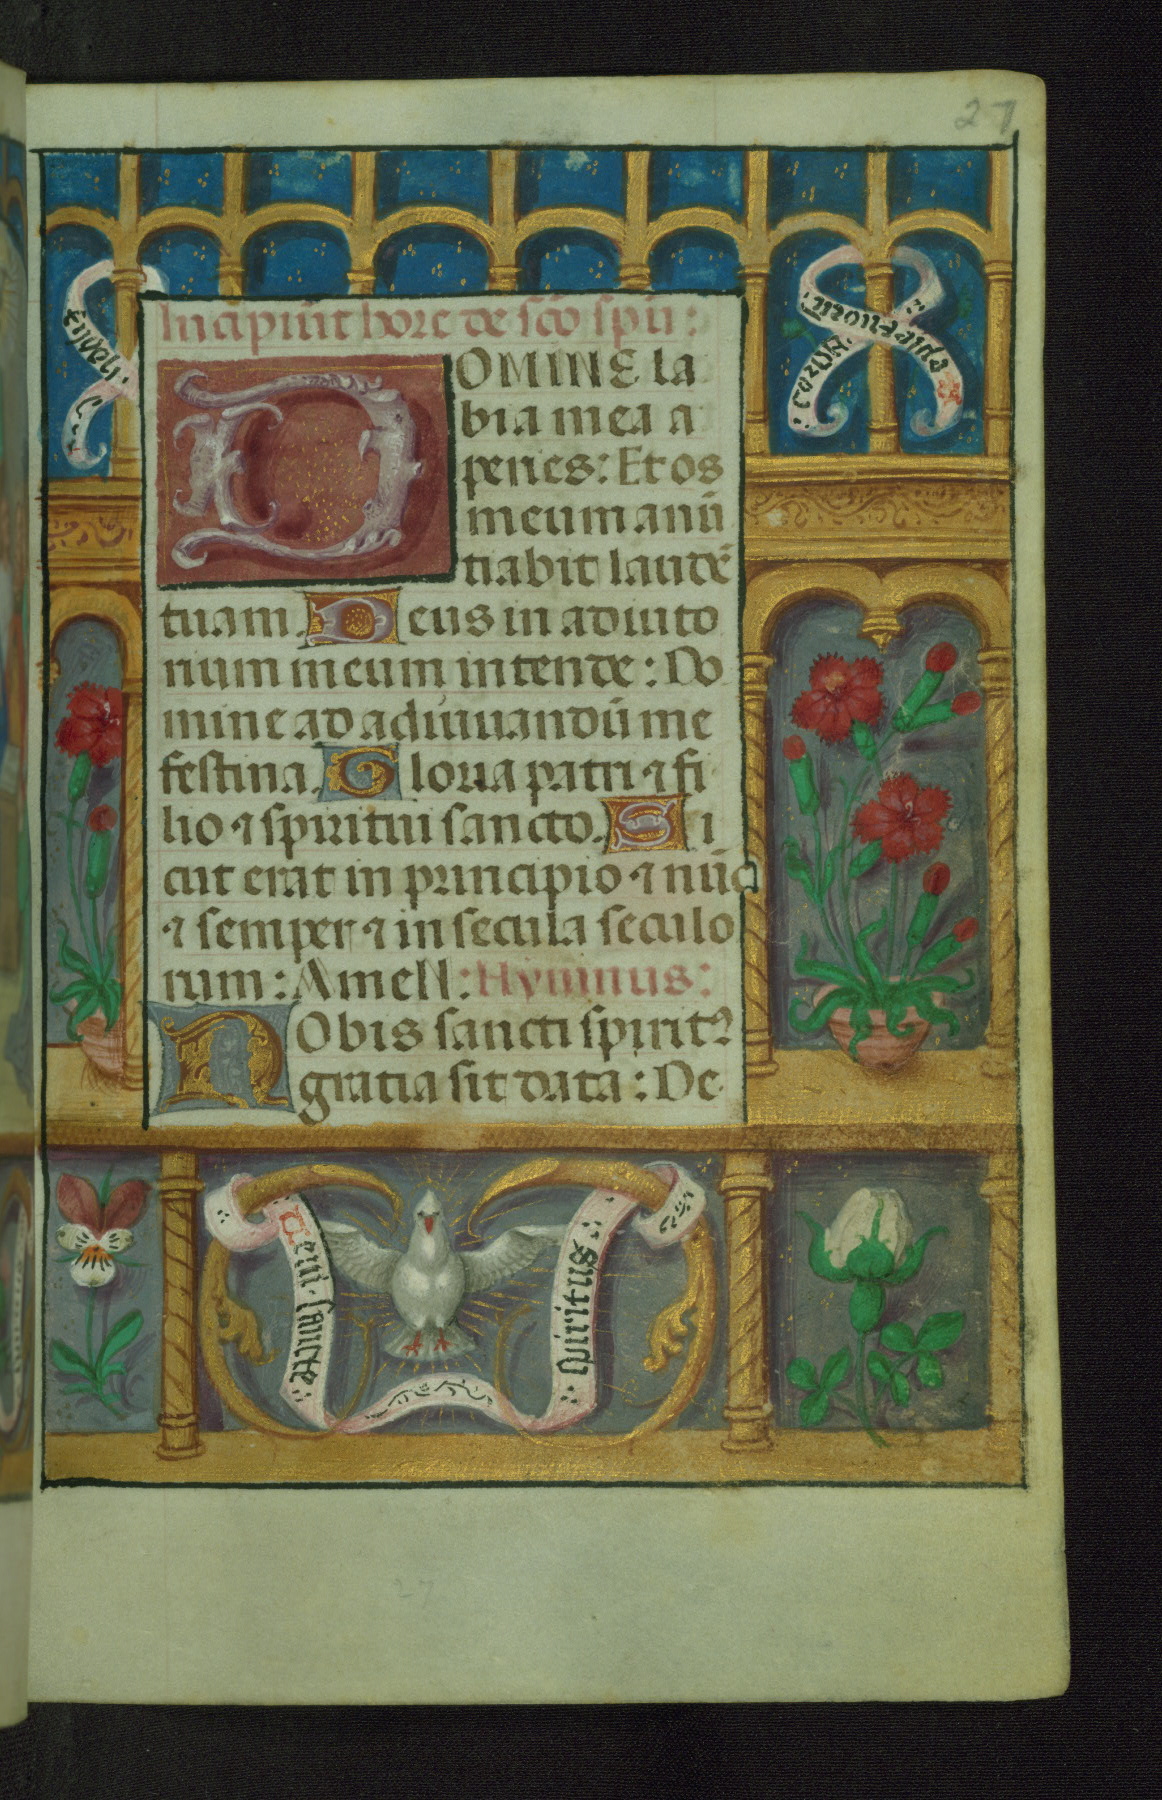 27
Incipiūt hore de scō spū:
DOMINE la
bia mea a
peries: Et os
meum anū
tiabit laudē
tuam. Deus in adiuto
rium meum intende: Do
mine ad adiuuandū me
festina. Gloria patri ⁊ fi
lio ⁊ spiritui sancto. Si
cut erat in principio ⁊ nūc
⁊ semper ⁊ in secula seculo
rum: Amen: Hymnus:
Nobis sancti spiritꝰ
gratia sit data: De
Veni. sancte:
spiritus
27